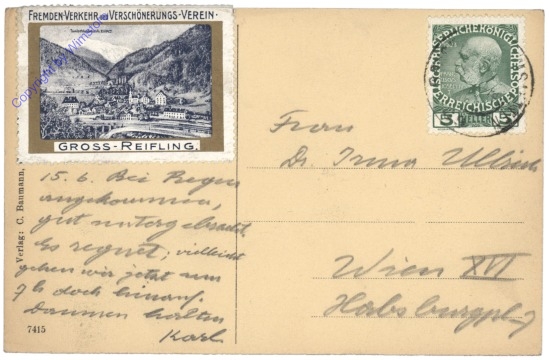 FREMDEN-VERKEHR u. VERSCHÖNERUNGS-VEREIN.
GROSS-REIFLING.
Copyright by Wimstore
KAISERLICHE KÖNIGLICHE
ÖSTERREICHISCHE POST
5 HELLER 5
Frau
Dr. Irma Ullrich
Wien XVI
Habsburgpl. 7
15. 6. Bei Regen
angekommen,
gut untergebracht.
Es regnet; vielleicht
gehen wir jetzt um
7h doch hinauf.
Daumen halten
Karl
Verlag: C. Baumann,
7415